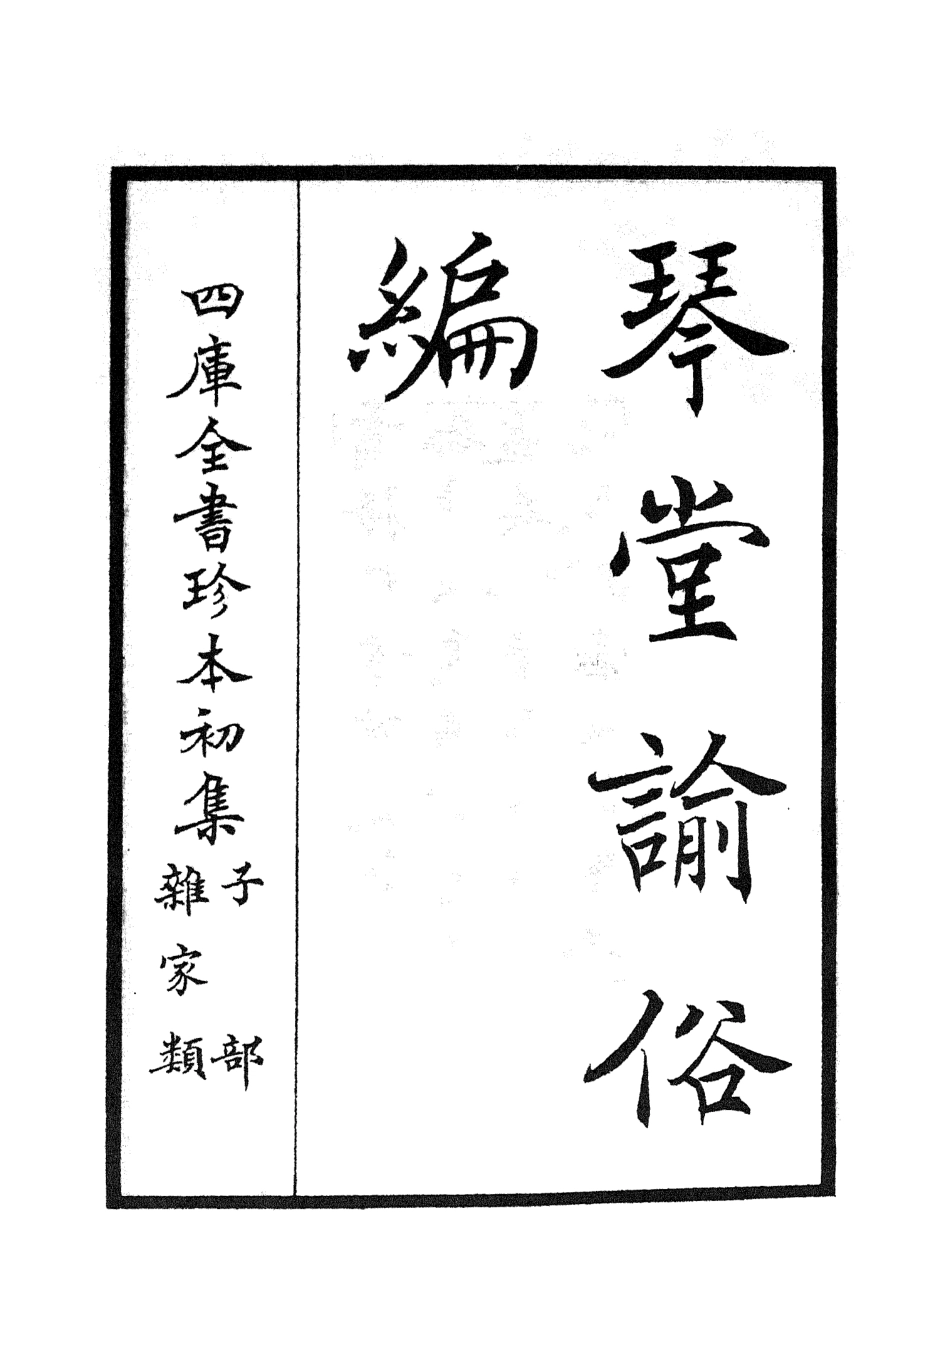 琴堂諭俗
編
四庫全書珍本初集
子部
雜家類